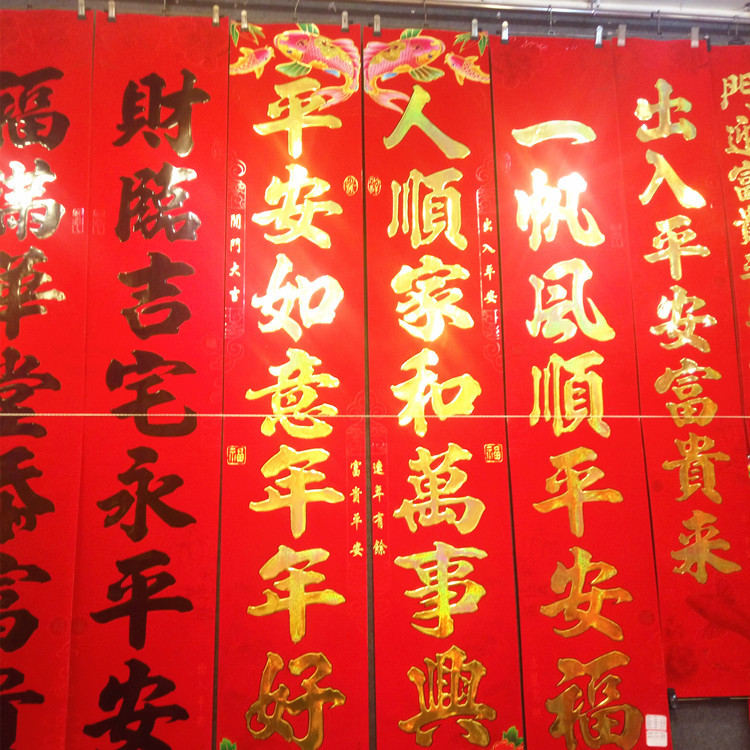 門迎富貴
出入平安富貴来
一帆风順平安福
出入平安
人順家和萬事興
連年有餘
福
富貴平安
平安如意年年好
開門大吉
福
財臨吉宅永平安
福滿華堂添富貴